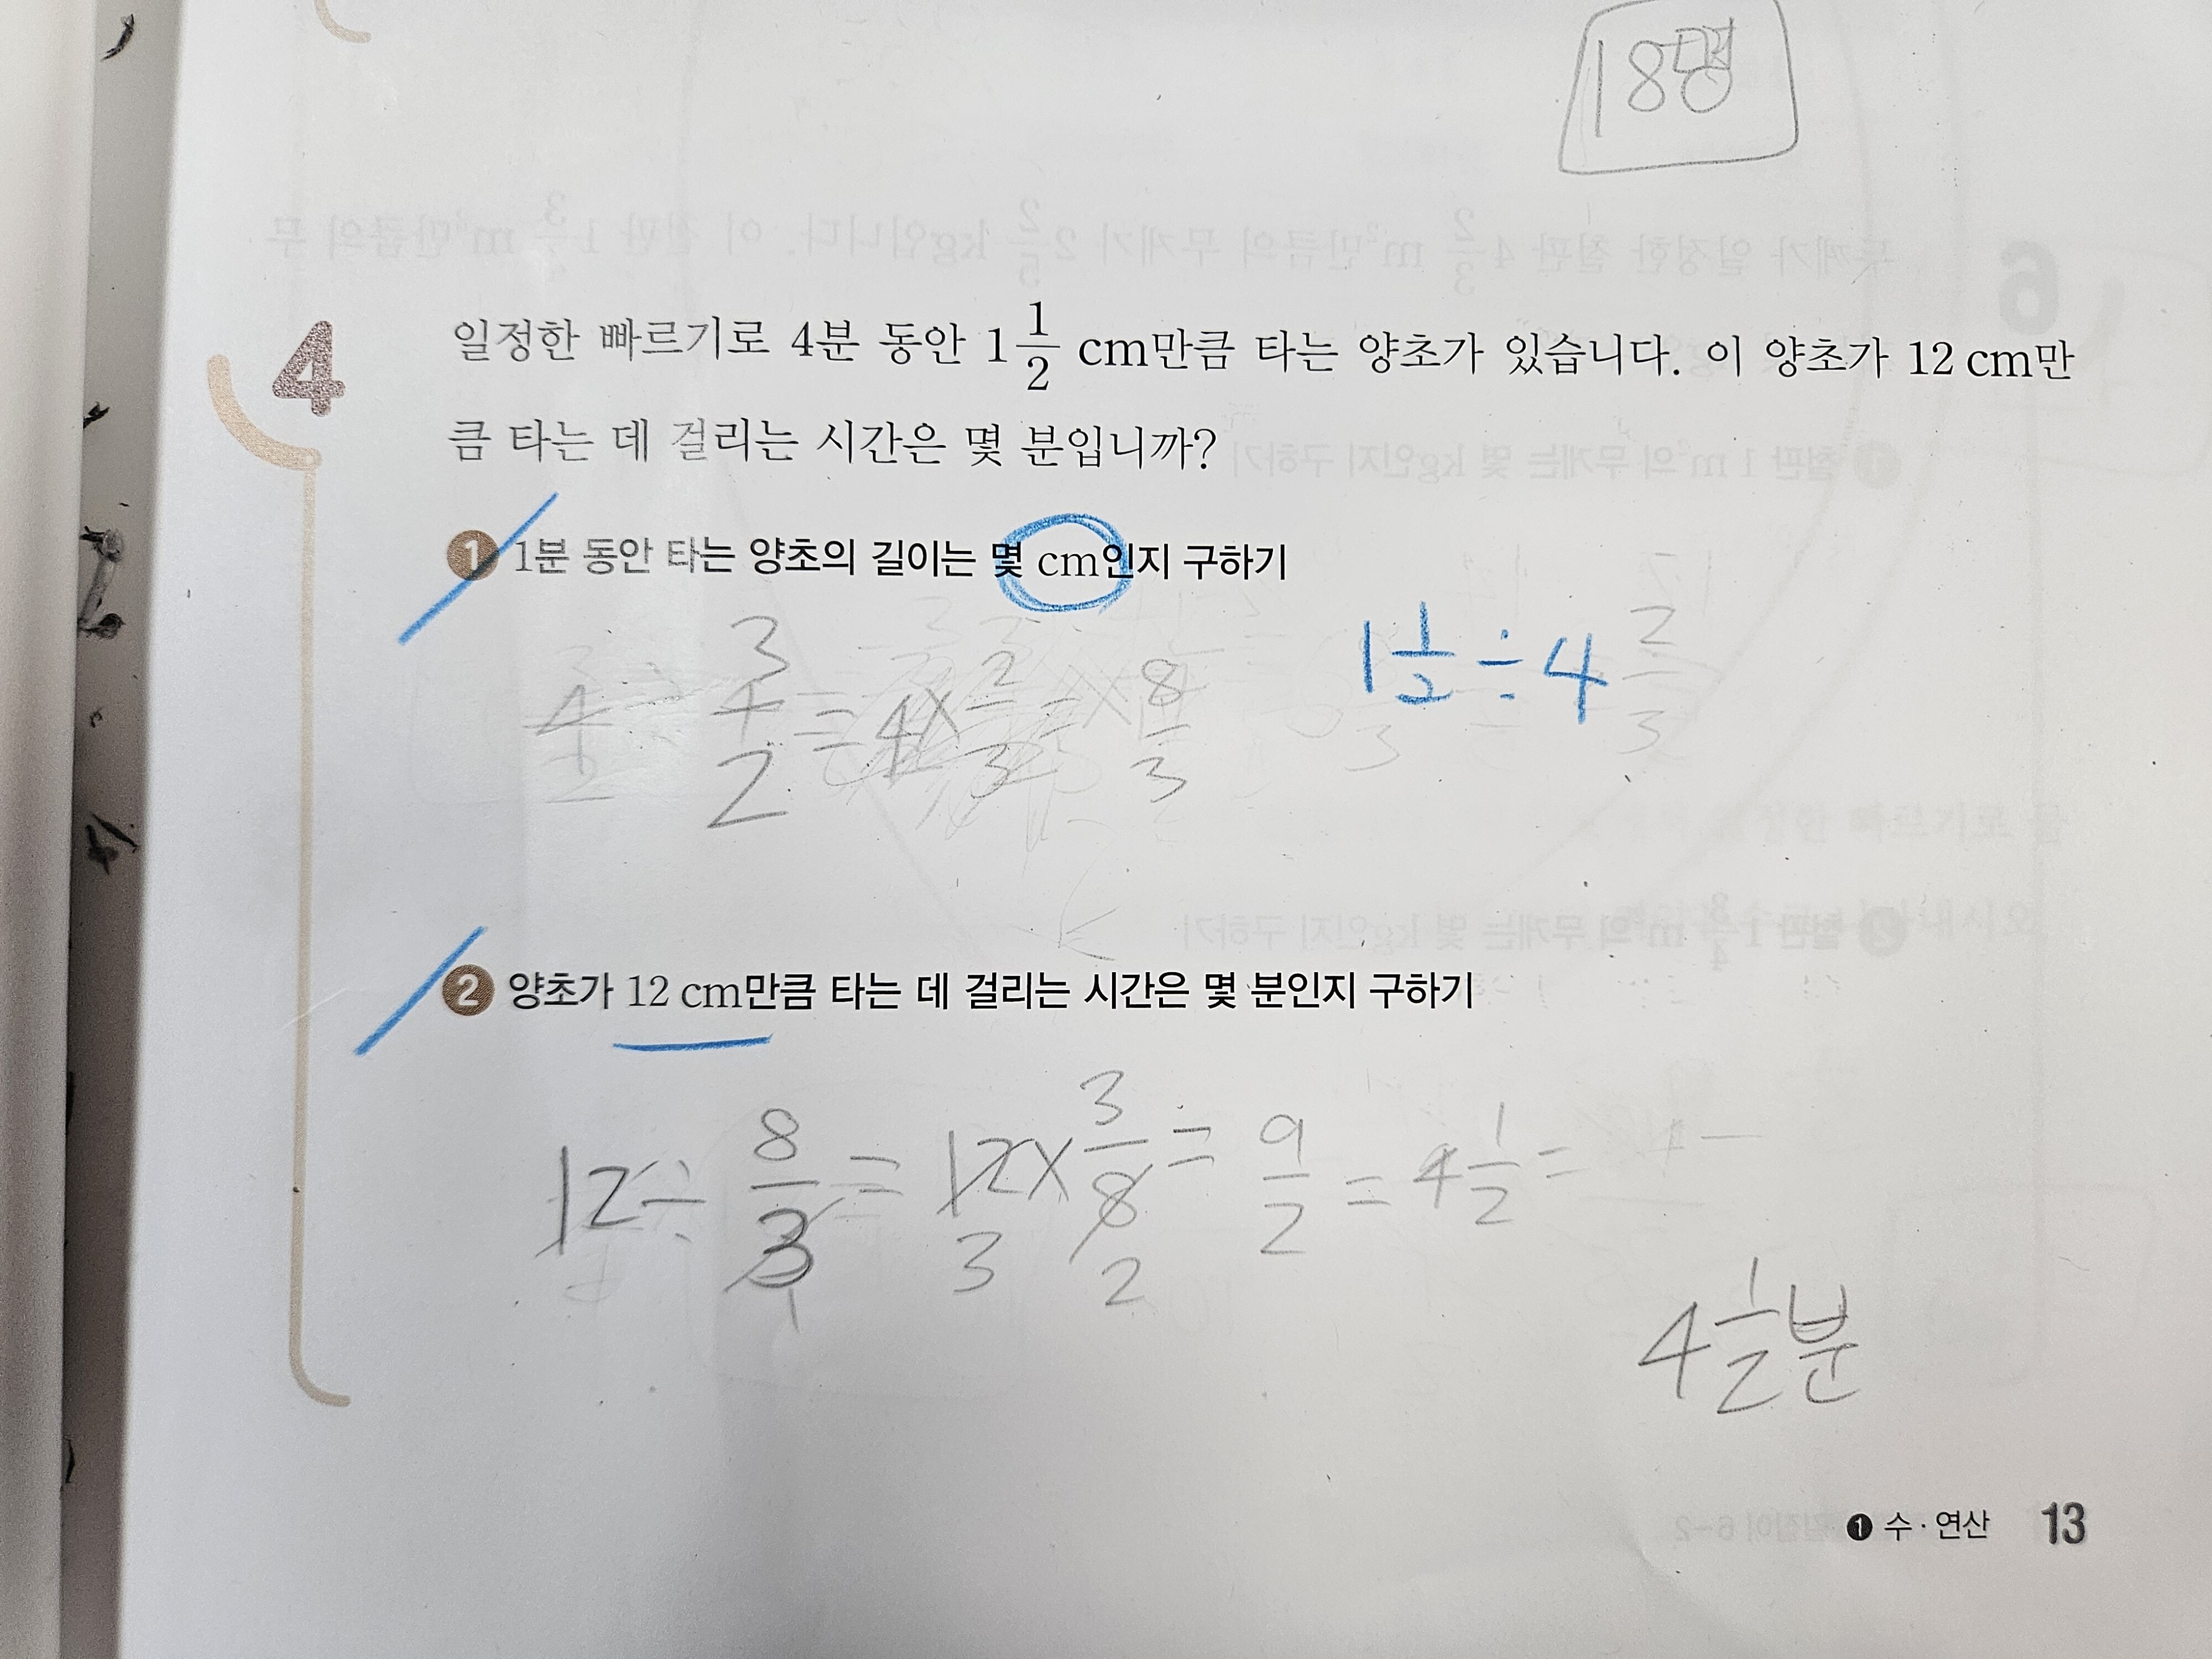 18명
4 일정한 빠르기로 4분 동안 1 1/2 cm만큼 타는 양초가 있습니다. 이 양초가 12 cm만
큼 타는 데 걸리는 시간은 몇 분입니까?
1 1분 동안 타는 양초의 길이는 몇 cm인지 구하기
= 4 × 2/3 = 8/3
1 1/2 ÷ 4
2 양초가 12 cm만큼 타는 데 걸리는 시간은 몇 분인지 구하기
12 ÷ 8/3 = 12 × 3/8 = 9/2 = 4 1/2 =
3 2
4 1/2 분
1 수 · 연산 13